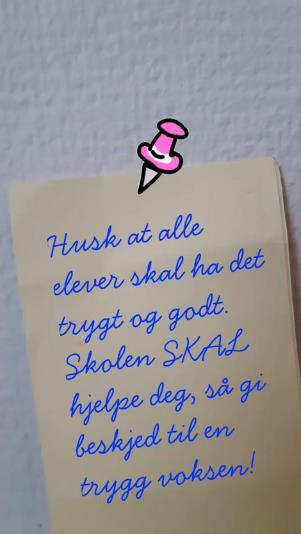 Husk at alle
elever skal ha det
trygt og godt.
Skolen SKAL
hjelpe deg, så gi
beskjed til en
trygg voksen!